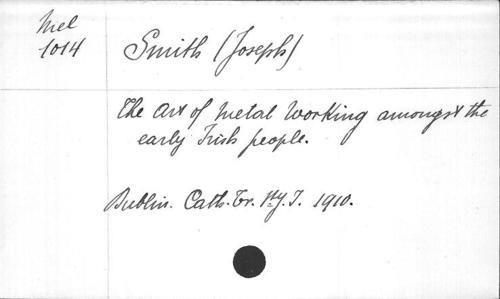 Mel
1014
Smith (Joseph)
The Art of Metal Working amongst the
early Irish people.
Dublin. Cath. Tr. Sty. I. 1910.